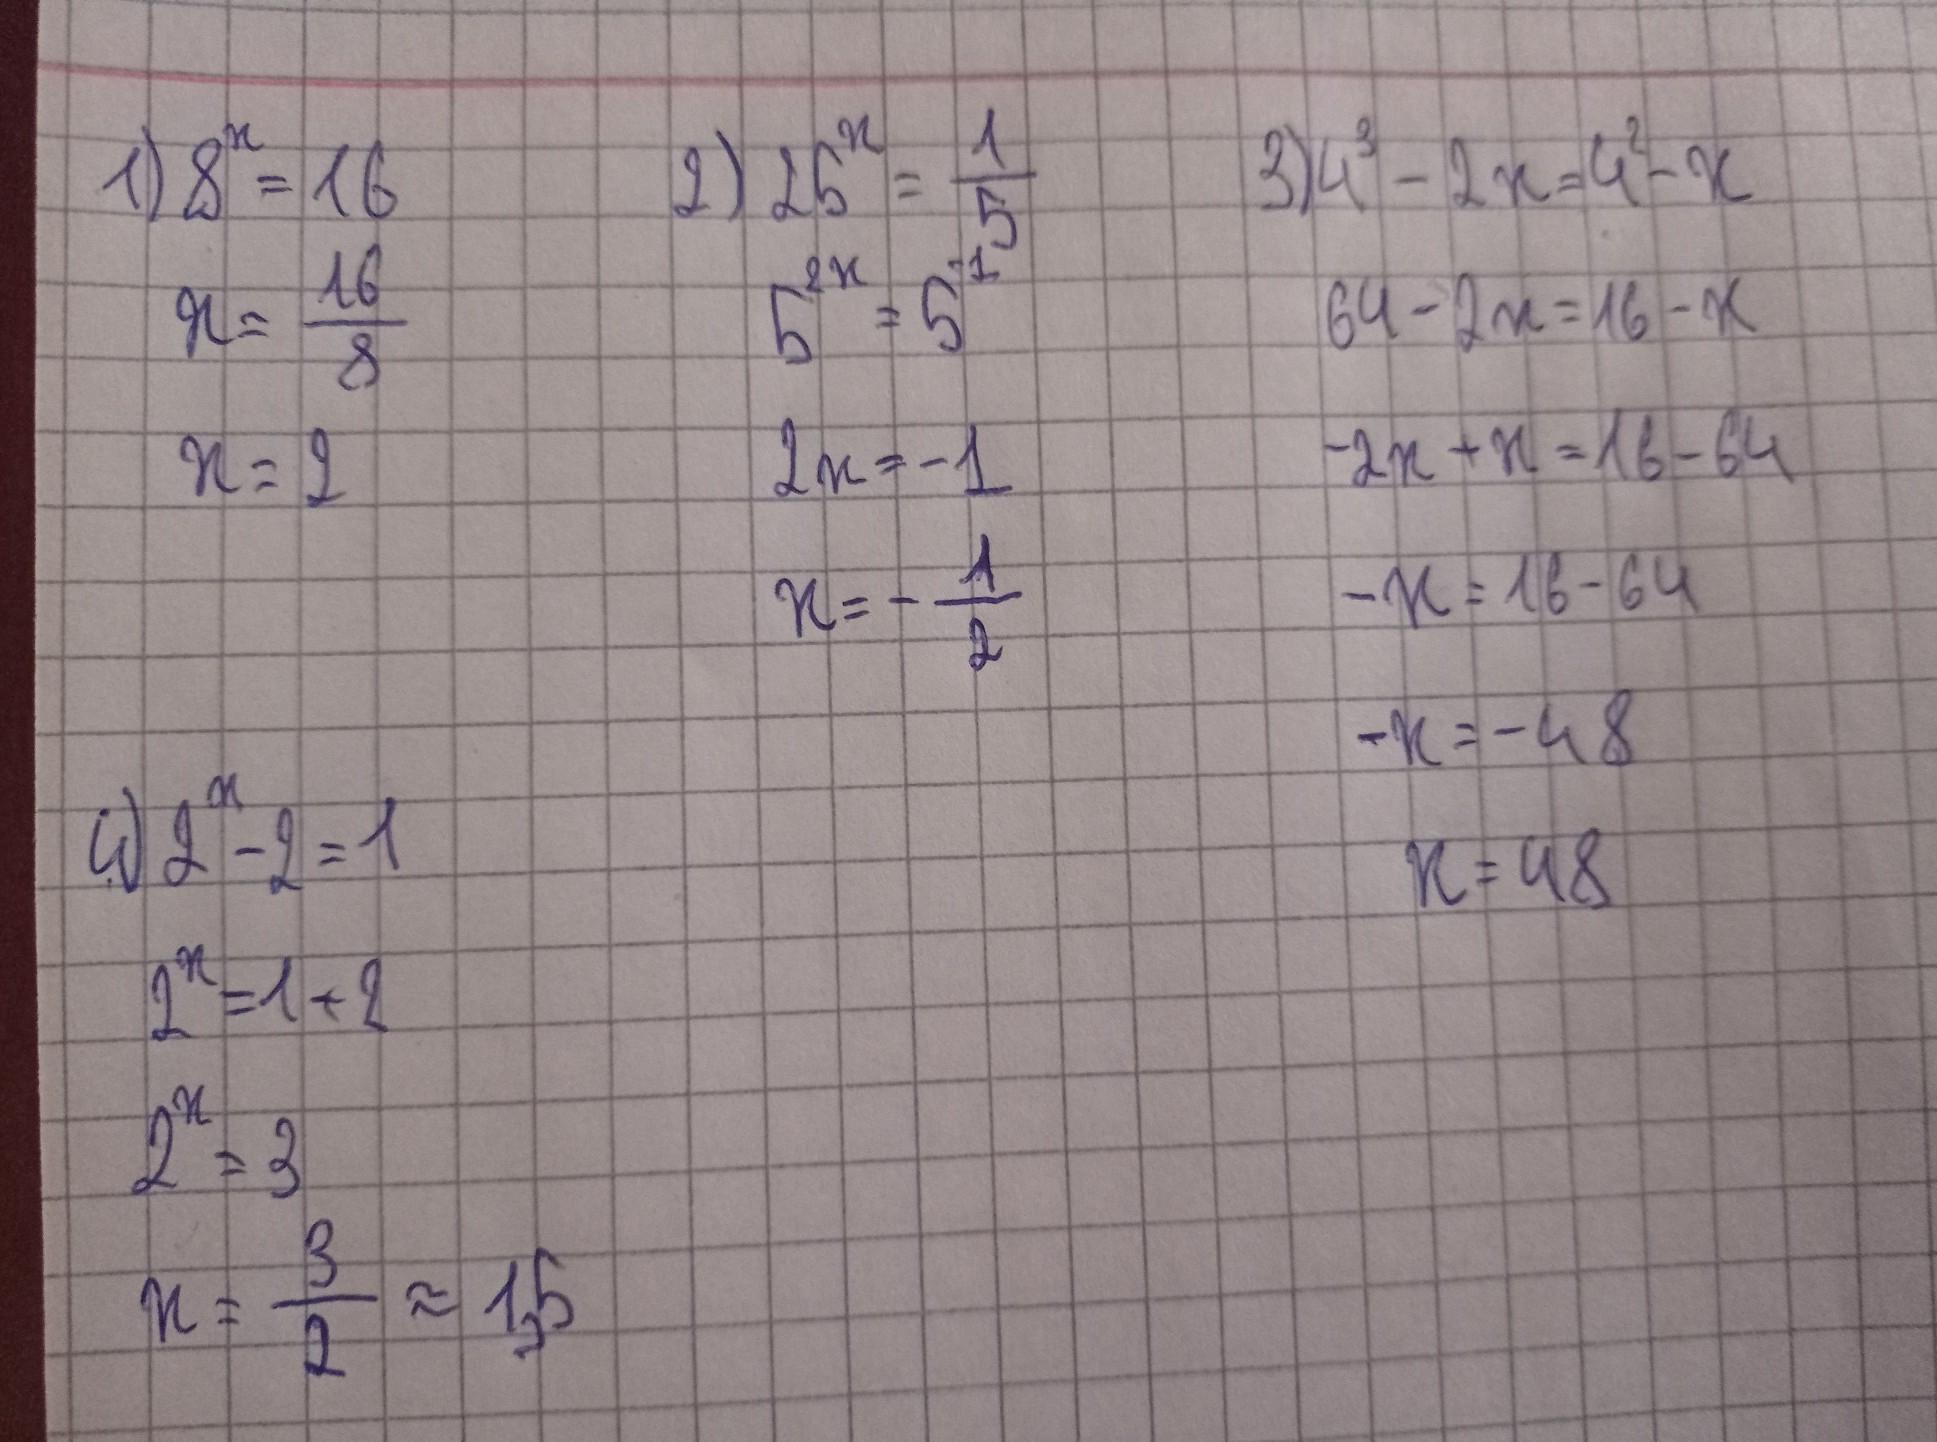 1) 8^x = 16
x = 16/8
x = 2
2) 25^x = 1/5
5^2x = 5^-1
2x = -1
x = - 1/2
3) 4^3 - 2x = 4^2 - x
64 - 2x = 16 - x
-2x + x = 16 - 64
-x = 16 - 64
-x = -48
x = 48
4) 2^x - 2 = 1
2^x = 1 + 2
2^x = 3
x = 3/2 ≈ 1,5